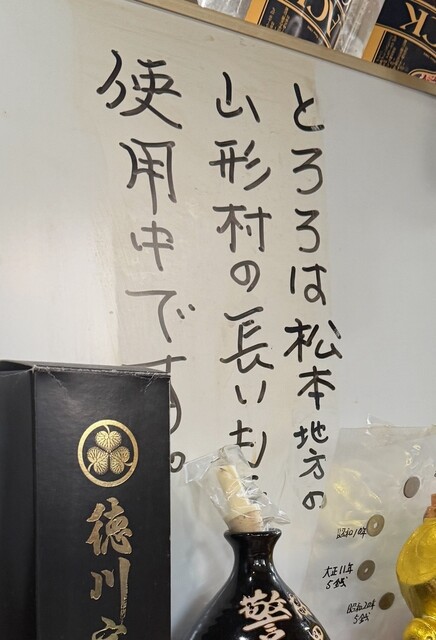 とろろは松本地方の
山形村の長いもを
使用中です。
徳川家
警
昭和01年
大正11年
5銭
昭和20年
5銭